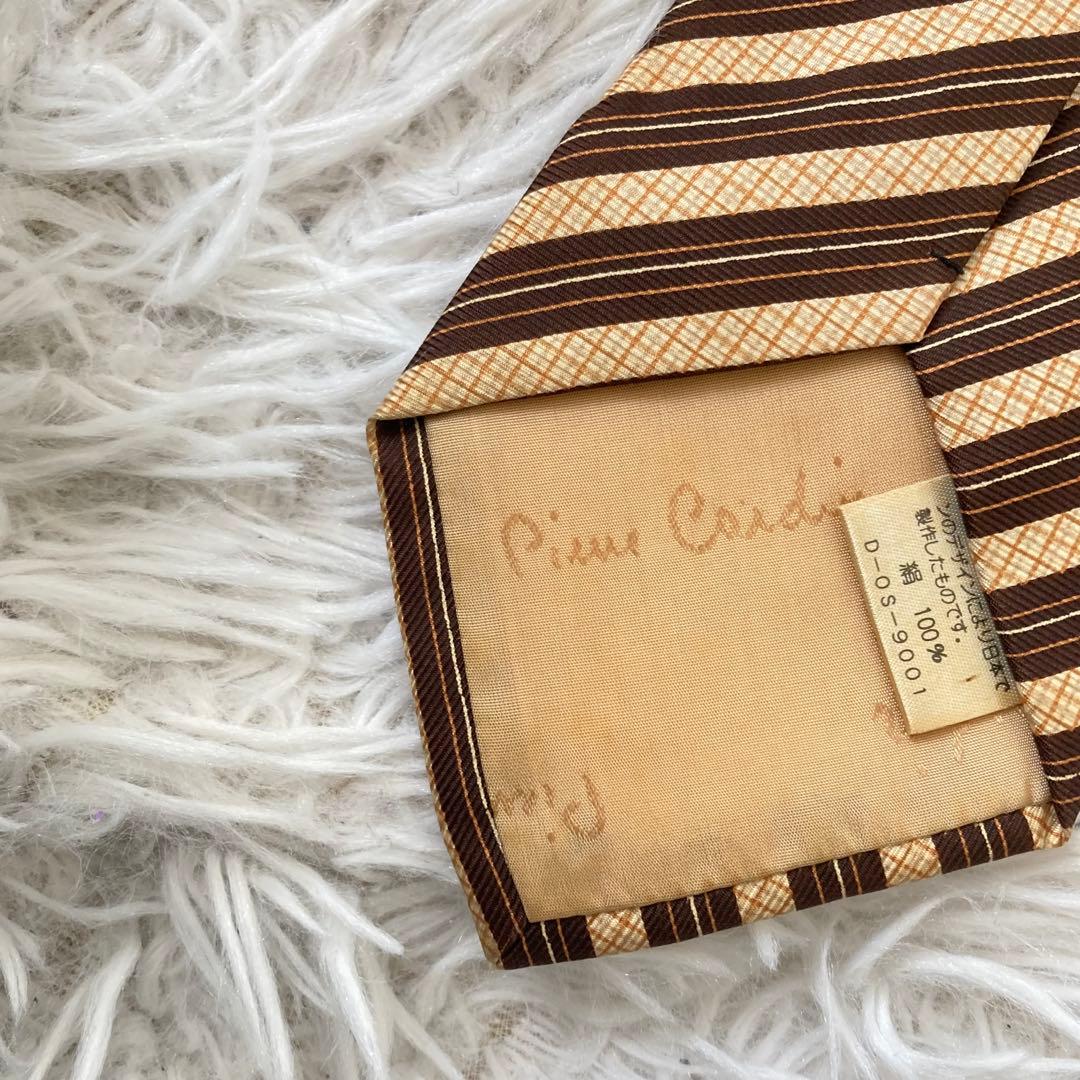 Pierre Cardin
ンのデザインにより日本で
製作したものです。
絹 100%
D-OS-9001